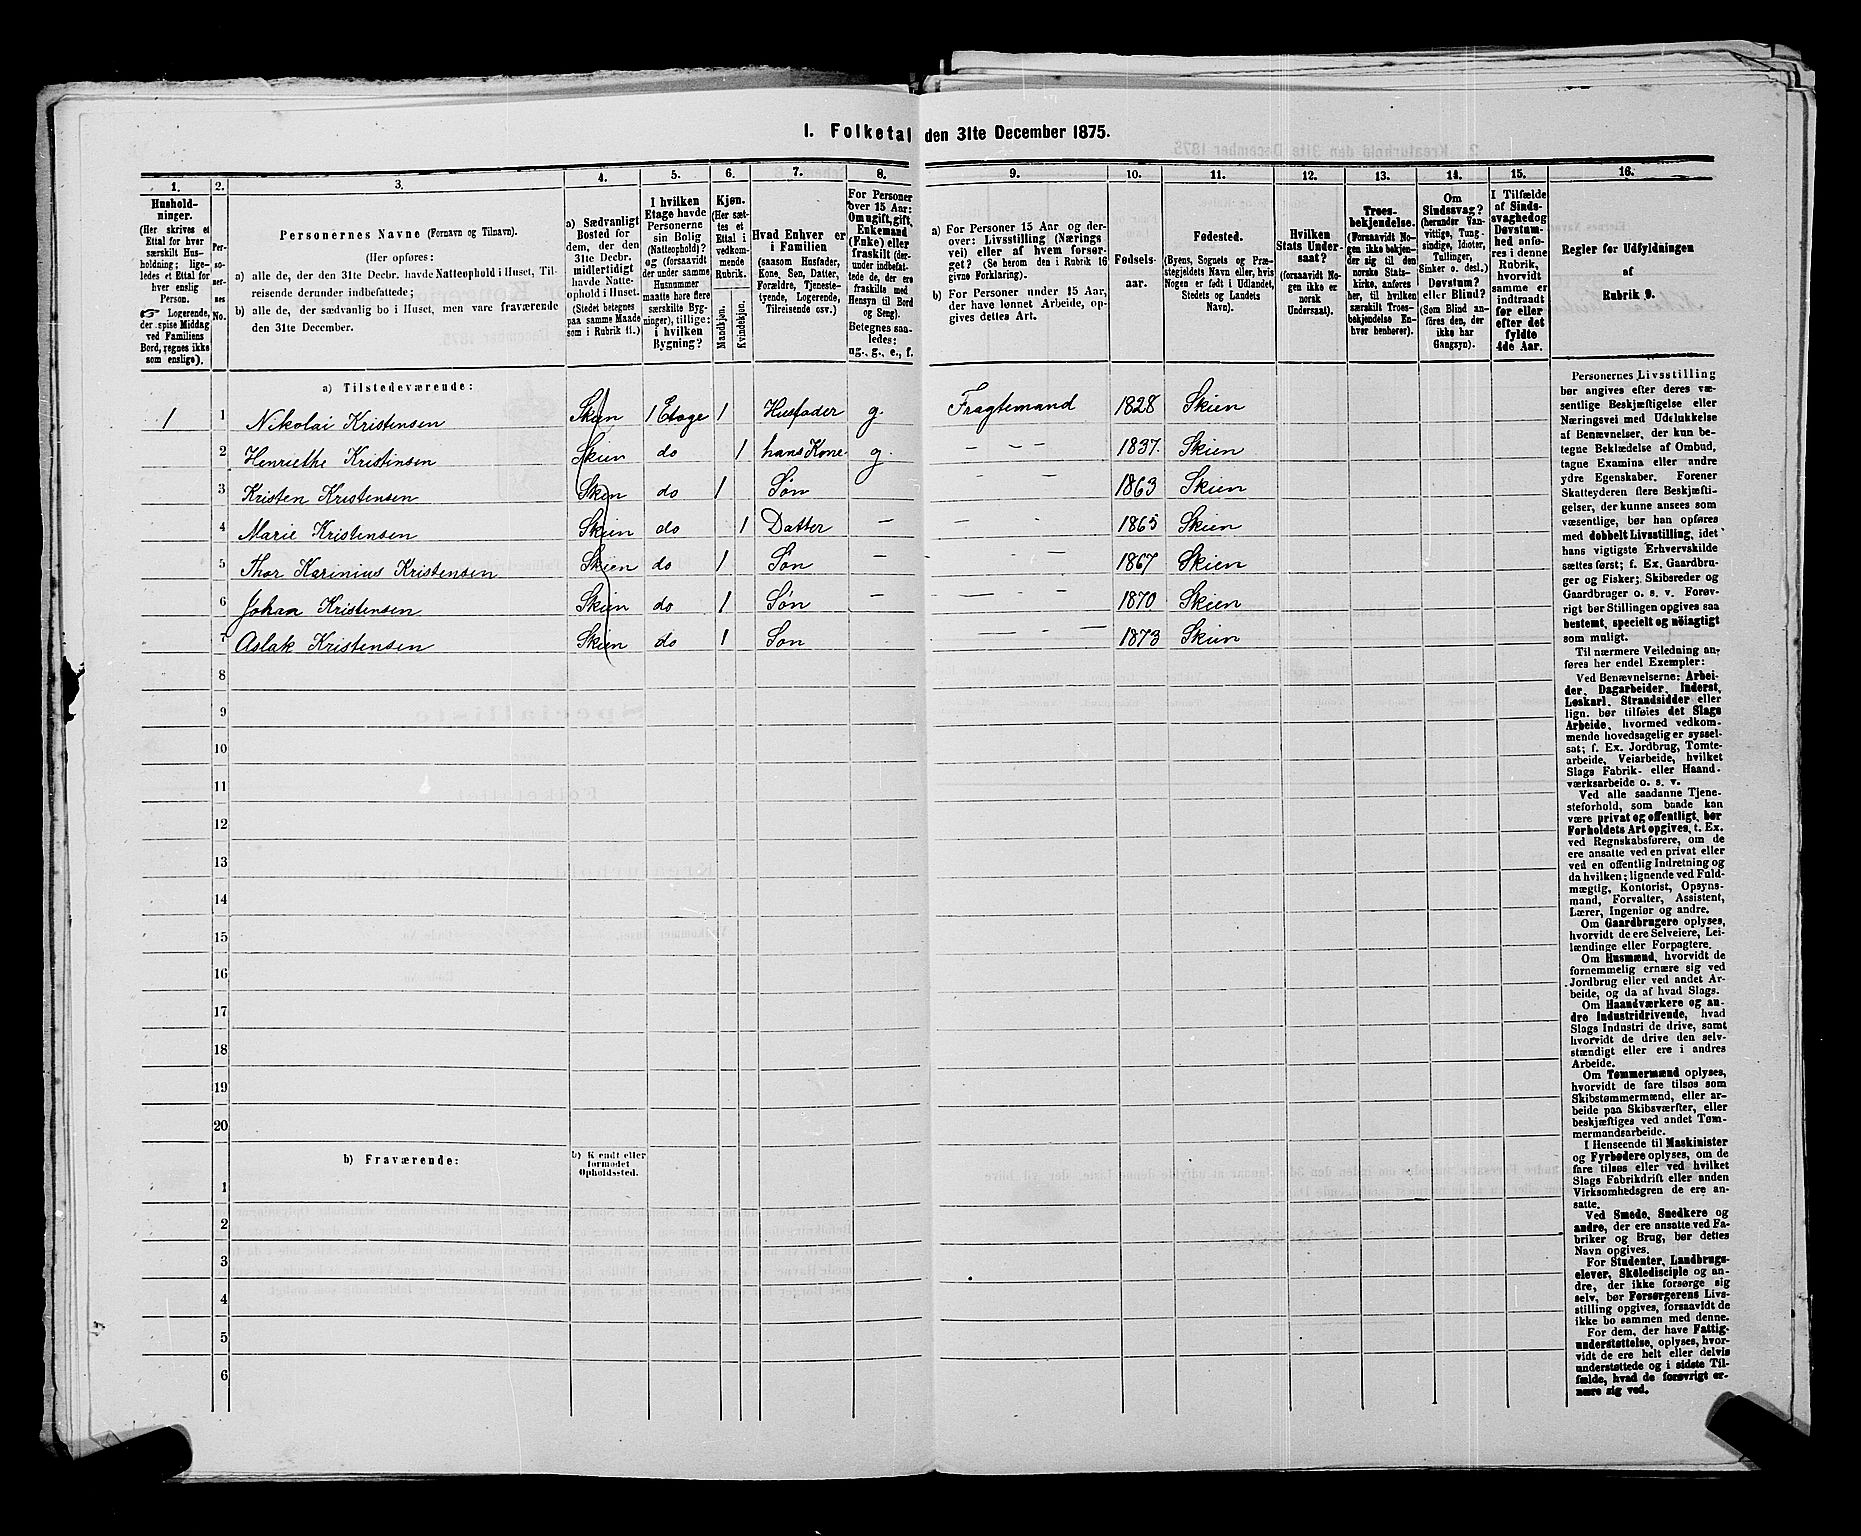 I. Folketal den 31te December 1875.
1. 2. 3. 4. 5. 6. 7. 8. 9. 10. 11. 12. 13. 14. 15. 16.
Hushold-
ninger.
(Her skrives et
Ettal for hver
særskilt Hus-
holdning; lige-
ledes et Ettal for
hver enslig
Person.
☞ Logerende,
der spise Middag
ved Familiens
Bord, regnes ikke
som enslige).
Per-
so-
ner-
nes
No.
Personernes Navne (Fornavn og Tilnavn).
(Her opføres:
a) alle de, der den 31te Decbr. havde Natteophold i Huset, Til-
reisende derunder indbefattede;
b) alle de, der sædvanlig bo i Huset, men vare fraværende
den 31te December.
a) Sædvanligt
Bosted for
dem, der den
31te Decbr.
midlertidigt
havde Natte-
ophold i Huset.
(Stedet betegnes
paa samme Maade
som i Rubrik 11.)
I hvilken
Etage havde
Personerne
sin Bolig
(Natteophold)?
og (forsaavidt
der under samme
Husnummer
maatte høre flere
særskilte Byg-
ninger), tillige:
i hvilken
Bygning?
Kjøn.
(Her sæt-
tes et
Ettal i
vedkom-
mende
Rubrik.
Mandkjøn.
Kvindekjøn.
Hvad Enhver er
i Familien
(saasom Husfader,
Kone, Søn, Datter,
Forældre, Tjeneste-
tyende, Logerende,
Tilreisende osv.)
For Personer
over 15 Aar:
Om ugift, gift,
Enkemand
(Enke) eller
fraskilt (der-
under indbefat-
tede de, der ere
fraskilte med
Hensyn til Bord
og Seng).
Betegnes saa-
ledes:
ug., g., e., f.
a) For Personer 15 Aar og der-
over: Livsstilling (Nærings
vei) eller af hvem forsør-
get? (Se herom den i Rubrik 16
givne Forklaring).
b) For Personer under 15 Aar,
der have lønnet Arbeide, op-
gives dettes Art.
Fødsels-
aar.
Fødested.
(Byens, Sognets og Præ-
stegjeldets Navn eller, hvis
Nogen er født i Udlandet,
Stedets og Landets
Navn).
Hvilken
Stats Under-
saat?
(forsaavidt No-
gen ikke er
norsk
Undersaat).
Troes-
bekjendelse.
(Forsaavidt No-
gen ikke bekjen-
der sig til den
norske Stats-
kirke, anføres
her, til hvilken
særskilt Troes-
bekjendelse En-
hver henhører).
Om
Sindssvag?
(herunder Van-
vittige, Tung-
sindige, Idioter,
Tullinger,
Sinker o. desl.)
Døvstum?
eller Blind?
(Som Blind an-
føres den, der
ikke har
Gangsyn).
I Tilfælde
af Sinds-
svaghed og
Døvstum-
hed anfø-
res i denne
Rubrik,
hvorvidt
samme er
indtraadt
før eller
efter det
fyldte
4de Aar.
Regler for Udfyldningen
af
Rubrik 9.
a) Tilstedeværende:
1 1 Nikolai Kristensen Skien 1 Etage 1 Husfader g. Fragtemand 1828 Skien
2 Henriethe Kristinsen Skien do 1 hans Kone g. — — — 1837. Skien
3 Kristen Kristensen Skien do 1 Søn 1863 Skien
4 Marie Kristensen Skien do 1 Datter — — 1865 Skien
5 Thor Karinius Kristensen Skien do 1 Søn — — — 1867 Skien
6 Johan Kristensen Skien do 1 Søn — — — 1870 Skien
7 Aslak Kristensen Skien do 1 Søn — — — 1873 Skien
8
9
10
11
12
13
14
15
16
17
18
19
20
b) Fraværende:
b) Kjendt eller
formodet
Opholdssted.
1
2
3
4
5
6
Personernes Livsstilling
bør angives efter deres væ-
sentlige Beskjæftigelse eller
Næringsvei med Udelukkelse
af Benævnelser, der kun be-
tegne Beklædelse af Ombud,
tagne Examina eller andre
ydre Egenskaber. Forener
Skatteyderen flere Beskjæfti-
gelser, der kunne ansees som
væsentlige, bør han opføres
med dobbelt Livsstilling, idet
hans vigtigste Erhvervskilde
sættes først; f. Ex. Gaardbru-
ger og Fisker; Skibsreder og
Gaardbruger o. s. v. Forøv-
rigt bør Stillingen opgives saa
bestemt, specielt og nøiagtigt
som muligt.
Til nærmere Veiledning an-
føres her endel Exempler:
Ved Benævnelserne: Arbei-
der, Dagarbeider, Inderst,
Løskarl, Strandsidder eller
lign. bør tilføies det Slags
Arbeide, hvormed vedkom-
mende hovedsagelig er syssel-
sat; f. Ex. Jordbrug, Tomte-
arbeide, Veiarbeide, hvilket
Slags Fabrik- eller Haand-
værksarbeide o. s. v.
Ved alle saadanne Tjene-
steforhold, som baade kan
være privat og offentligt, bør
Forholdets Art opgives, t. Ex.
ved Regnskabsførere, om de
ere ansatte ved en privat eller
ved en offentlig Indretning og
da hvilken; lignende ved Fuld-
mægtig, Kontorist, Opsyns-
mand, Forvalter, Assistent,
Lærer, Ingeniør og andre.
Om Gaardbrugere oplyses,
hvorvidt de ere Selveiere, Lei-
lændinge eller Forpagtere.
Om Husmænd, hvorvidt de
fornemmelig ernære sig ved
Jordbrug eller ved andet Ar-
beide, og da af hvad Slags.
Om Haandværkere og an-
dre Industridrivende, hvad
Slags Industri de drive, samt
hvorvidt de drive den selv-
stændigt eller ere i andres
Arbeide.
Om Tømmermænd oplyses,
hvorvidt de fare tilsøs som
Skibstømmermænd, eller ar-
beide paa Skibsværfter, eller
beskjæftiges ved andet Tøm-
mermandsarbeide.
I Henseende til Maskinister
og Fyrbødere oplyses, om de
fare tilsøs eller ved hvilket
Slags Fabrikdrift eller anden
Virksomhedsgren de ere an-
satte.
Ved Smede, Snedkere og
andre, der ere ansatte ved Fa-
briker og Brug, bør dettes
Navn opgives.
For Studenter, Landbrugs-
elever, Skoledisciple og an-
dre, der ikke forsørge sig
selv, bør Forsørgerens Livs-
stilling opgives, forsaavidt de
ikke bo sammen med denne.
For dem, der have Fattig-
understøttelse, oplyses, hvor-
vidt de ere helt eller delvis
understøttede og i sidste Til-
fælde, hvad de forøvrigt er-
nære sig ved.